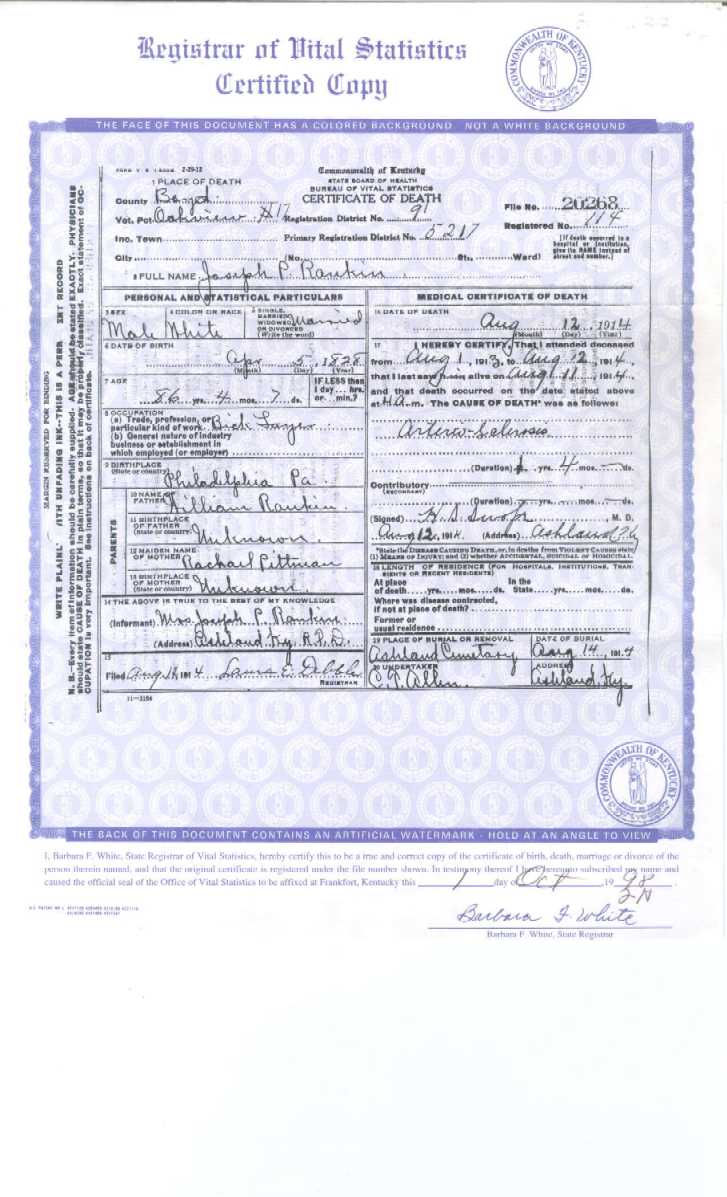 Registrar of Vital Statistics
Certified Copy
COMMONWEALTH OF KENTUCKY
THE FACE OF THIS DOCUMENT HAS A COLORED BACKGROUND NOT A WHITE BACKGROUND
2-29-12
Commonwealth of Kentucky
STATE BOARD OF HEALTH
BUREAU OF VITAL STATISTICS
CERTIFICATE OF DEATH
1 PLACE OF DEATH
County Boyd
Vot. Pct. Oakview #17
Registration District No. 91
Inc. Town
Primary Registration District No. 5217
City (No. Sts., Ward)
File No. 20268
Registered No. 114
[If death occurred in a hospital or institution, give its NAME instead of street and number.]
2 FULL NAME Joseph P. Rankin
PERSONAL AND STATISTICAL PARTICULARS
3 SEX Male
4 COLOR OR RACE White
5 SINGLE, MARRIED, WIDOWED, OR DIVORCED (Write the word) Married
6 DATE OF BIRTH
Apr 5, 1828
(Month) (Day) (Year)
7 AGE
86 yrs. 4 mos. 7 ds.
IF LESS than 1 day ... hrs. or ... min.?
8 OCCUPATION
(a) Trade, profession, or particular kind of work
(b) General nature of industry
business or establishment in
which employed (or employer)
9 BIRTHPLACE
(State or country) Philadelphia Pa.
PARENTS
10 NAME OF FATHER William Rankin
11 BIRTHPLACE OF FATHER (State or country) Unknown
12 MAIDEN NAME OF MOTHER Rachael Pittman
13 BIRTHPLACE OF MOTHER (State or country) Unknown
14 THE ABOVE IS TRUE TO THE BEST OF MY KNOWLEDGE
(Informant) Mrs. Joseph P. Rankin
(Address) Ashland Ky. R.F.D.
15
Filed Aug 191 4 REGISTRAR
11—3184
MEDICAL CERTIFICATE OF DEATH
16 DATE OF DEATH
Aug 12, 1914
(Month) (Day) (Year)
17 I HEREBY CERTIFY, That I attended deceased
from Aug 1, 1913, to Aug 12, 1914,
that I last saw him alive on Aug 11, 1914,
and that death occurred on the date stated above
The CAUSE OF DEATH* was as follows:
Arterio-Sclerosis
(Duration) yrs. 4 mos. ds.
Contributory
(SECONDARY)
(Duration) yrs. mos. ds.
(Signed) M. D.
Aug 12, 1914. (Address) Ashland Ky
*State the DISEASE CAUSING DEATH, or, in deaths from VIOLENT CAUSES state
(1) MEANS OF INJURY; and (2) whether ACCIDENTAL, SUICIDAL or HOMICIDAL.
18 LENGTH OF RESIDENCE (FOR HOSPITALS, INSTITUTIONS, TRANSIENTS OR RECENT RESIDENTS)
At place of death yrs. mos. ds. In the State yrs. mos. ds.
Where was disease contracted,
if not at place of death?
Former or
usual residence
19 PLACE OF BURIAL OR REMOVAL Ashland Cemetary
DATE OF BURIAL Aug 14, 1914
20 UNDERTAKER C. T. Allen
ADDRESS Ashland, Ky.
MARGIN RESERVED FOR BINDING
N. B.—Every item of information should be carefully supplied. AGE should be stated EXACTLY. PHYSICIANS
should state CAUSE OF DEATH in plain terms, so that it may be properly classified. Exact statement of OC-
CUPATION is very important. See instructions on back of certificate.
COMMONWEALTH OF KENTUCKY
THE BACK OF THIS DOCUMENT CONTAINS AN ARTIFICIAL WATERMARK - HOLD AT AN ANGLE TO VIEW
I, Barbara F. White, State Registrar of Vital Statistics, hereby certify this to be a true and correct copy of the certificate of birth, death, marriage or divorce of the
person therein named, and that the original certificate is registered under the file number shown. In testimony thereof I have hereunto subscribed my name and
caused the official seal of the Office of Vital Statistics to be affixed at Frankfort, Kentucky this 1 day of Oct 19 98
Barbara F. White
Barbara F. White, State Registrar